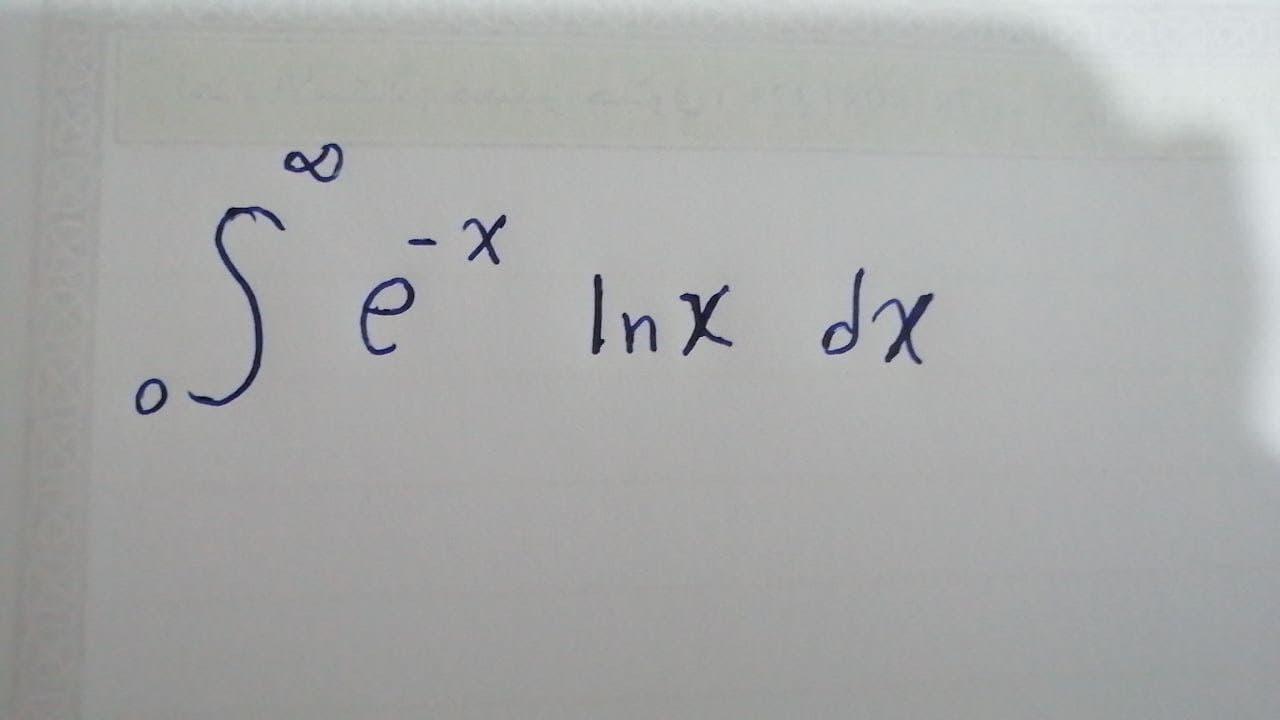 ∫₀^∞ e^{-x} ln x dx